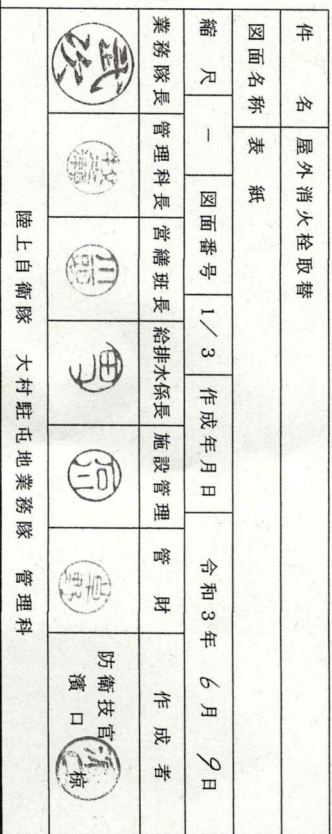 件 名 屋外消火栓取替
図面名称 表 紙
縮 尺 － 図面番号 1/3 作成年月日 令和3年 6月 9日
業務隊長 管理科長 営繕班長 給排水係長 施設管理 管 財 作 成 者
防衛技官
濱口 椋
陸上自衛隊 大村駐屯地業務隊 管理科